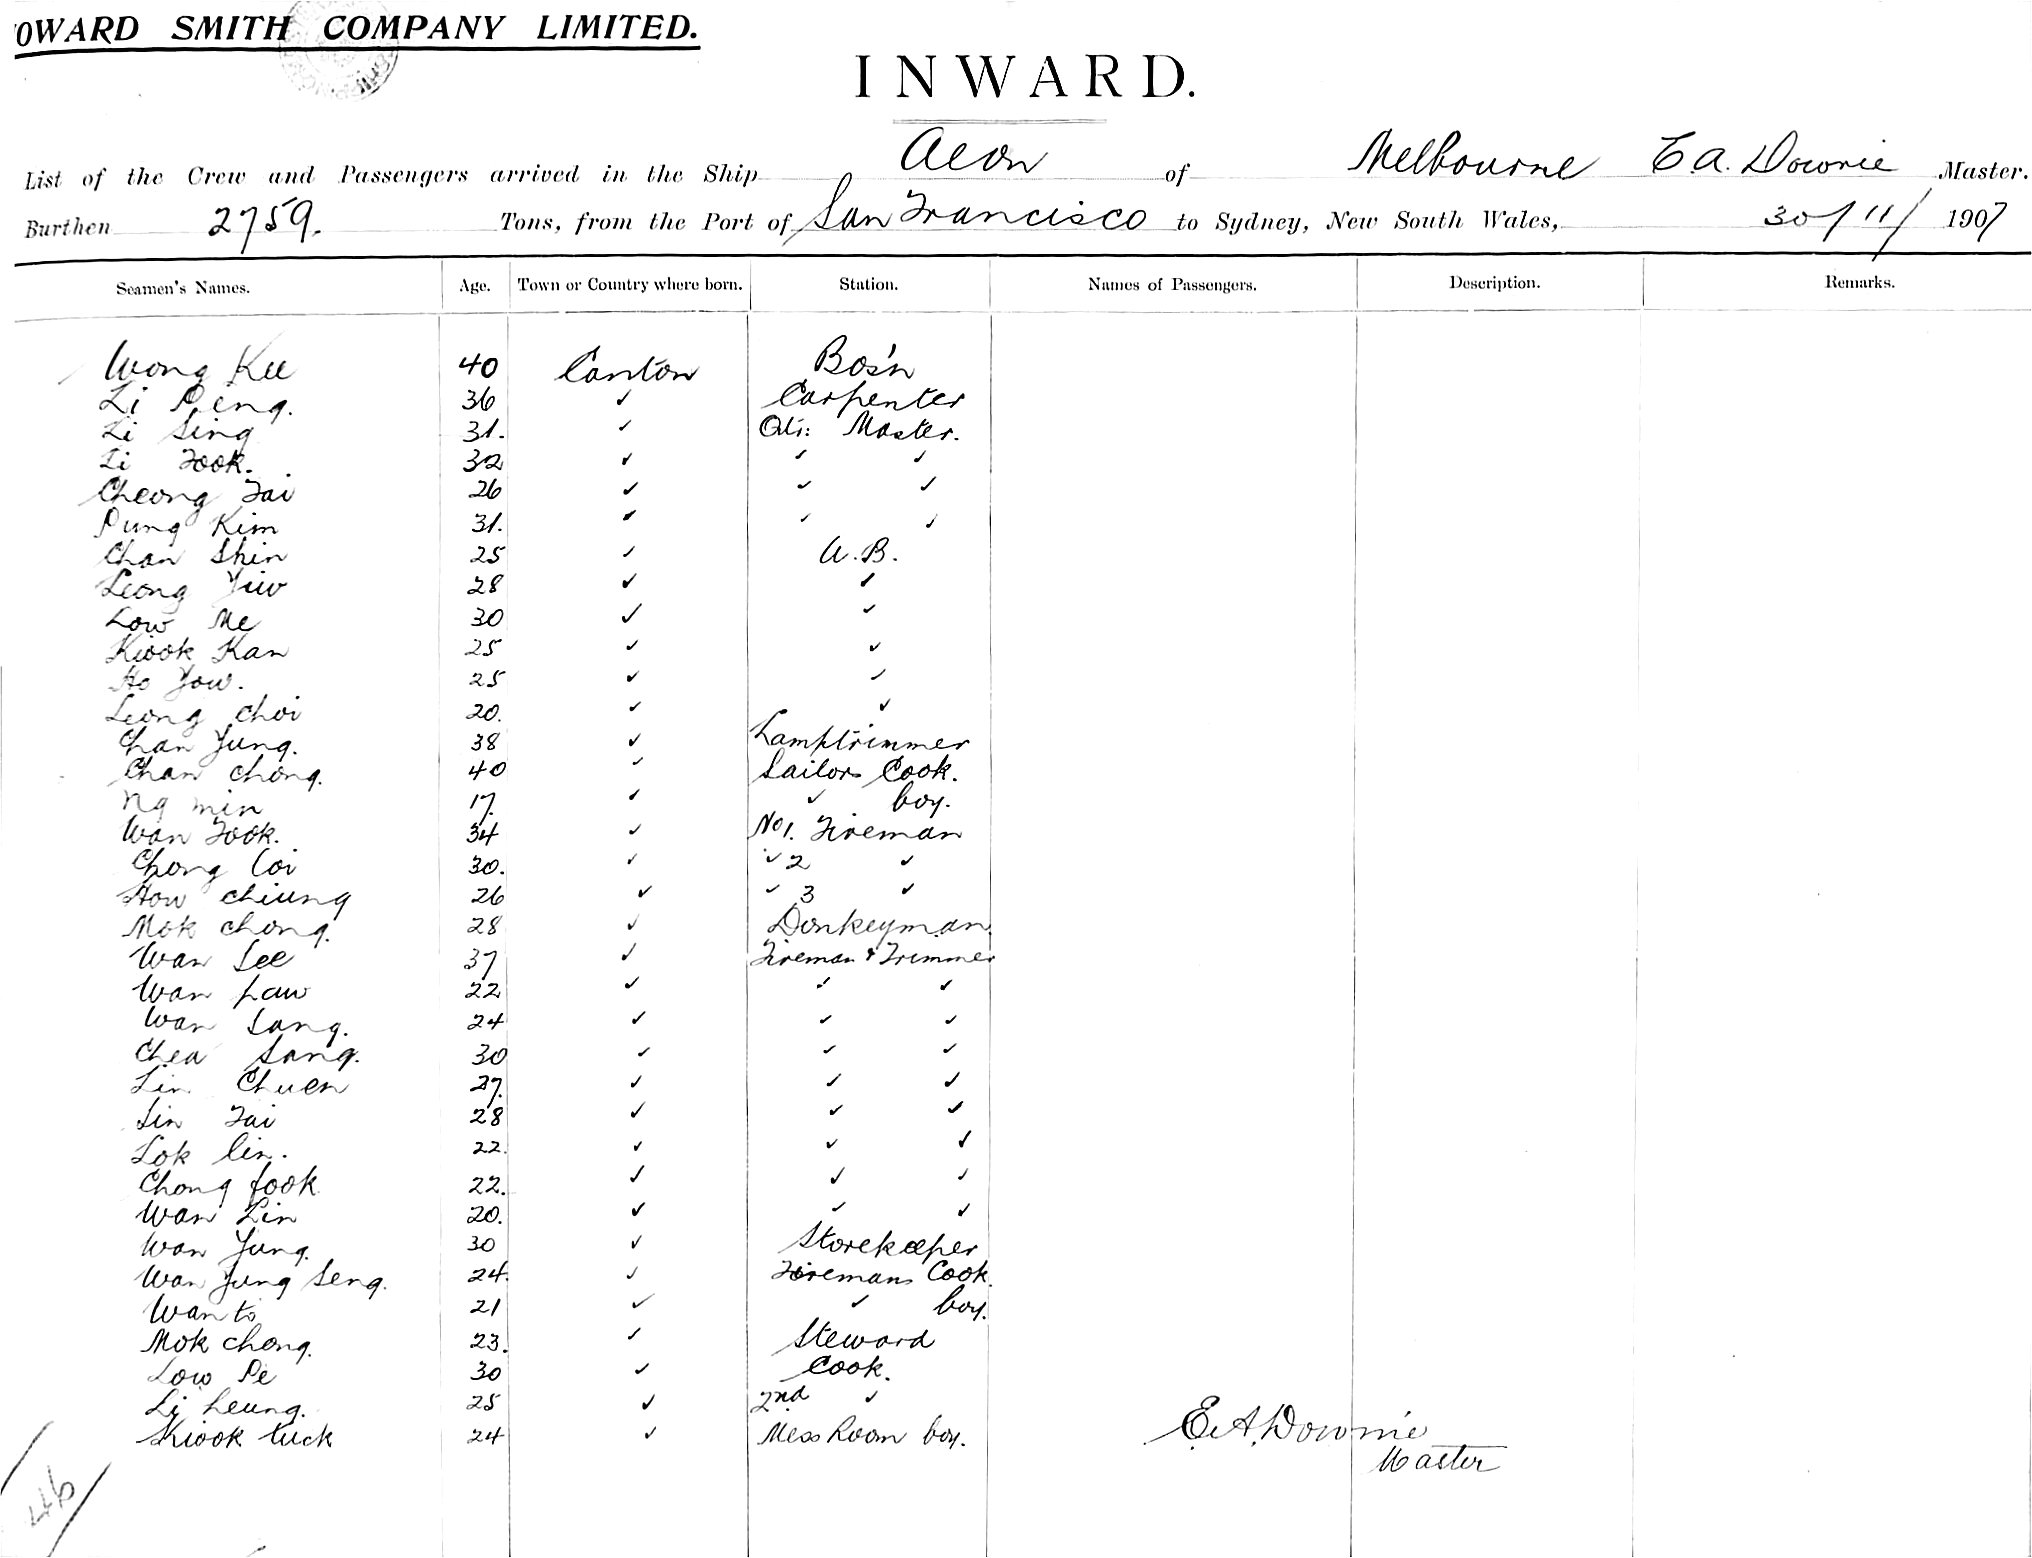 OWARD SMITH COMPANY LIMITED.
INWARD.
List of the Crew and Passengers arrived in the Ship Aeon of Melbourne E. A. Downie Master.
Burthen 2759. Tons, from the Port of San Francisco to Sydney, New South Wales, 30/11/1907
Seamen's Names. Age. Town or Country where born. Station. Names of Passengers. Description. Remarks.
Wong Kee 40 Canton Bos'n
Li Peng. 36 ✓ Carpenter
Li Sing 31. ✓ Qtr: Master.
Li Fook. 32 ✓ ✓ ✓
Cheong Tai 26 ✓ ✓ ✓
Pung Kim 31. ✓ ✓ ✓
Chan Shin 25 ✓ A.B.
Leong Yiw 28 ✓ ✓
Low Me 30 ✓ ✓
Kwok Kan 25 ✓ ✓
Ho Yow. 25 ✓ ✓
Leong Choi 20. ✓ ✓
Chan Yung. 38 ✓ Lamptrimmer
Chan Chong. 40 ✓ Sailors Cook.
Ng Min 17. ✓ ✓ boy.
Wan Fook. 34 ✓ No 1. Fireman
Chong Coi 30. ✓ ✓ 2 ✓
How Chiung 26 ✓ ✓ 3 ✓
Mok Chong. 28 ✓ Donkeyman.
Wan See 37 ✓ Fireman & Trimmer
Wan Law 22 ✓ ✓ ✓
Wan Sang. 24 ✓ ✓ ✓
Chea Sang. 30 ✓ ✓ ✓
Lin Chuen 27. ✓ ✓ ✓
Lin Tai 28 ✓ ✓ ✓
Lok Lin. 22. ✓ ✓ ✓
Chong Fook 22. ✓ ✓ ✓
Wan Lin 20. ✓ ✓ ✓
Wan Yung. 30 ✓ Storekeeper
Wan Yung Seng. 24. ✓ Firemans Cook.
Wan to 21 ✓ ✓ boy.
Mok Chong. 23. ✓ Steward
Low Pe 30 ✓ Cook.
Li Leung. 25 ✓ 2nd ✓
Kwok Luck 24 ✓ Mess Room boy.
E. A. Downie
Master
46